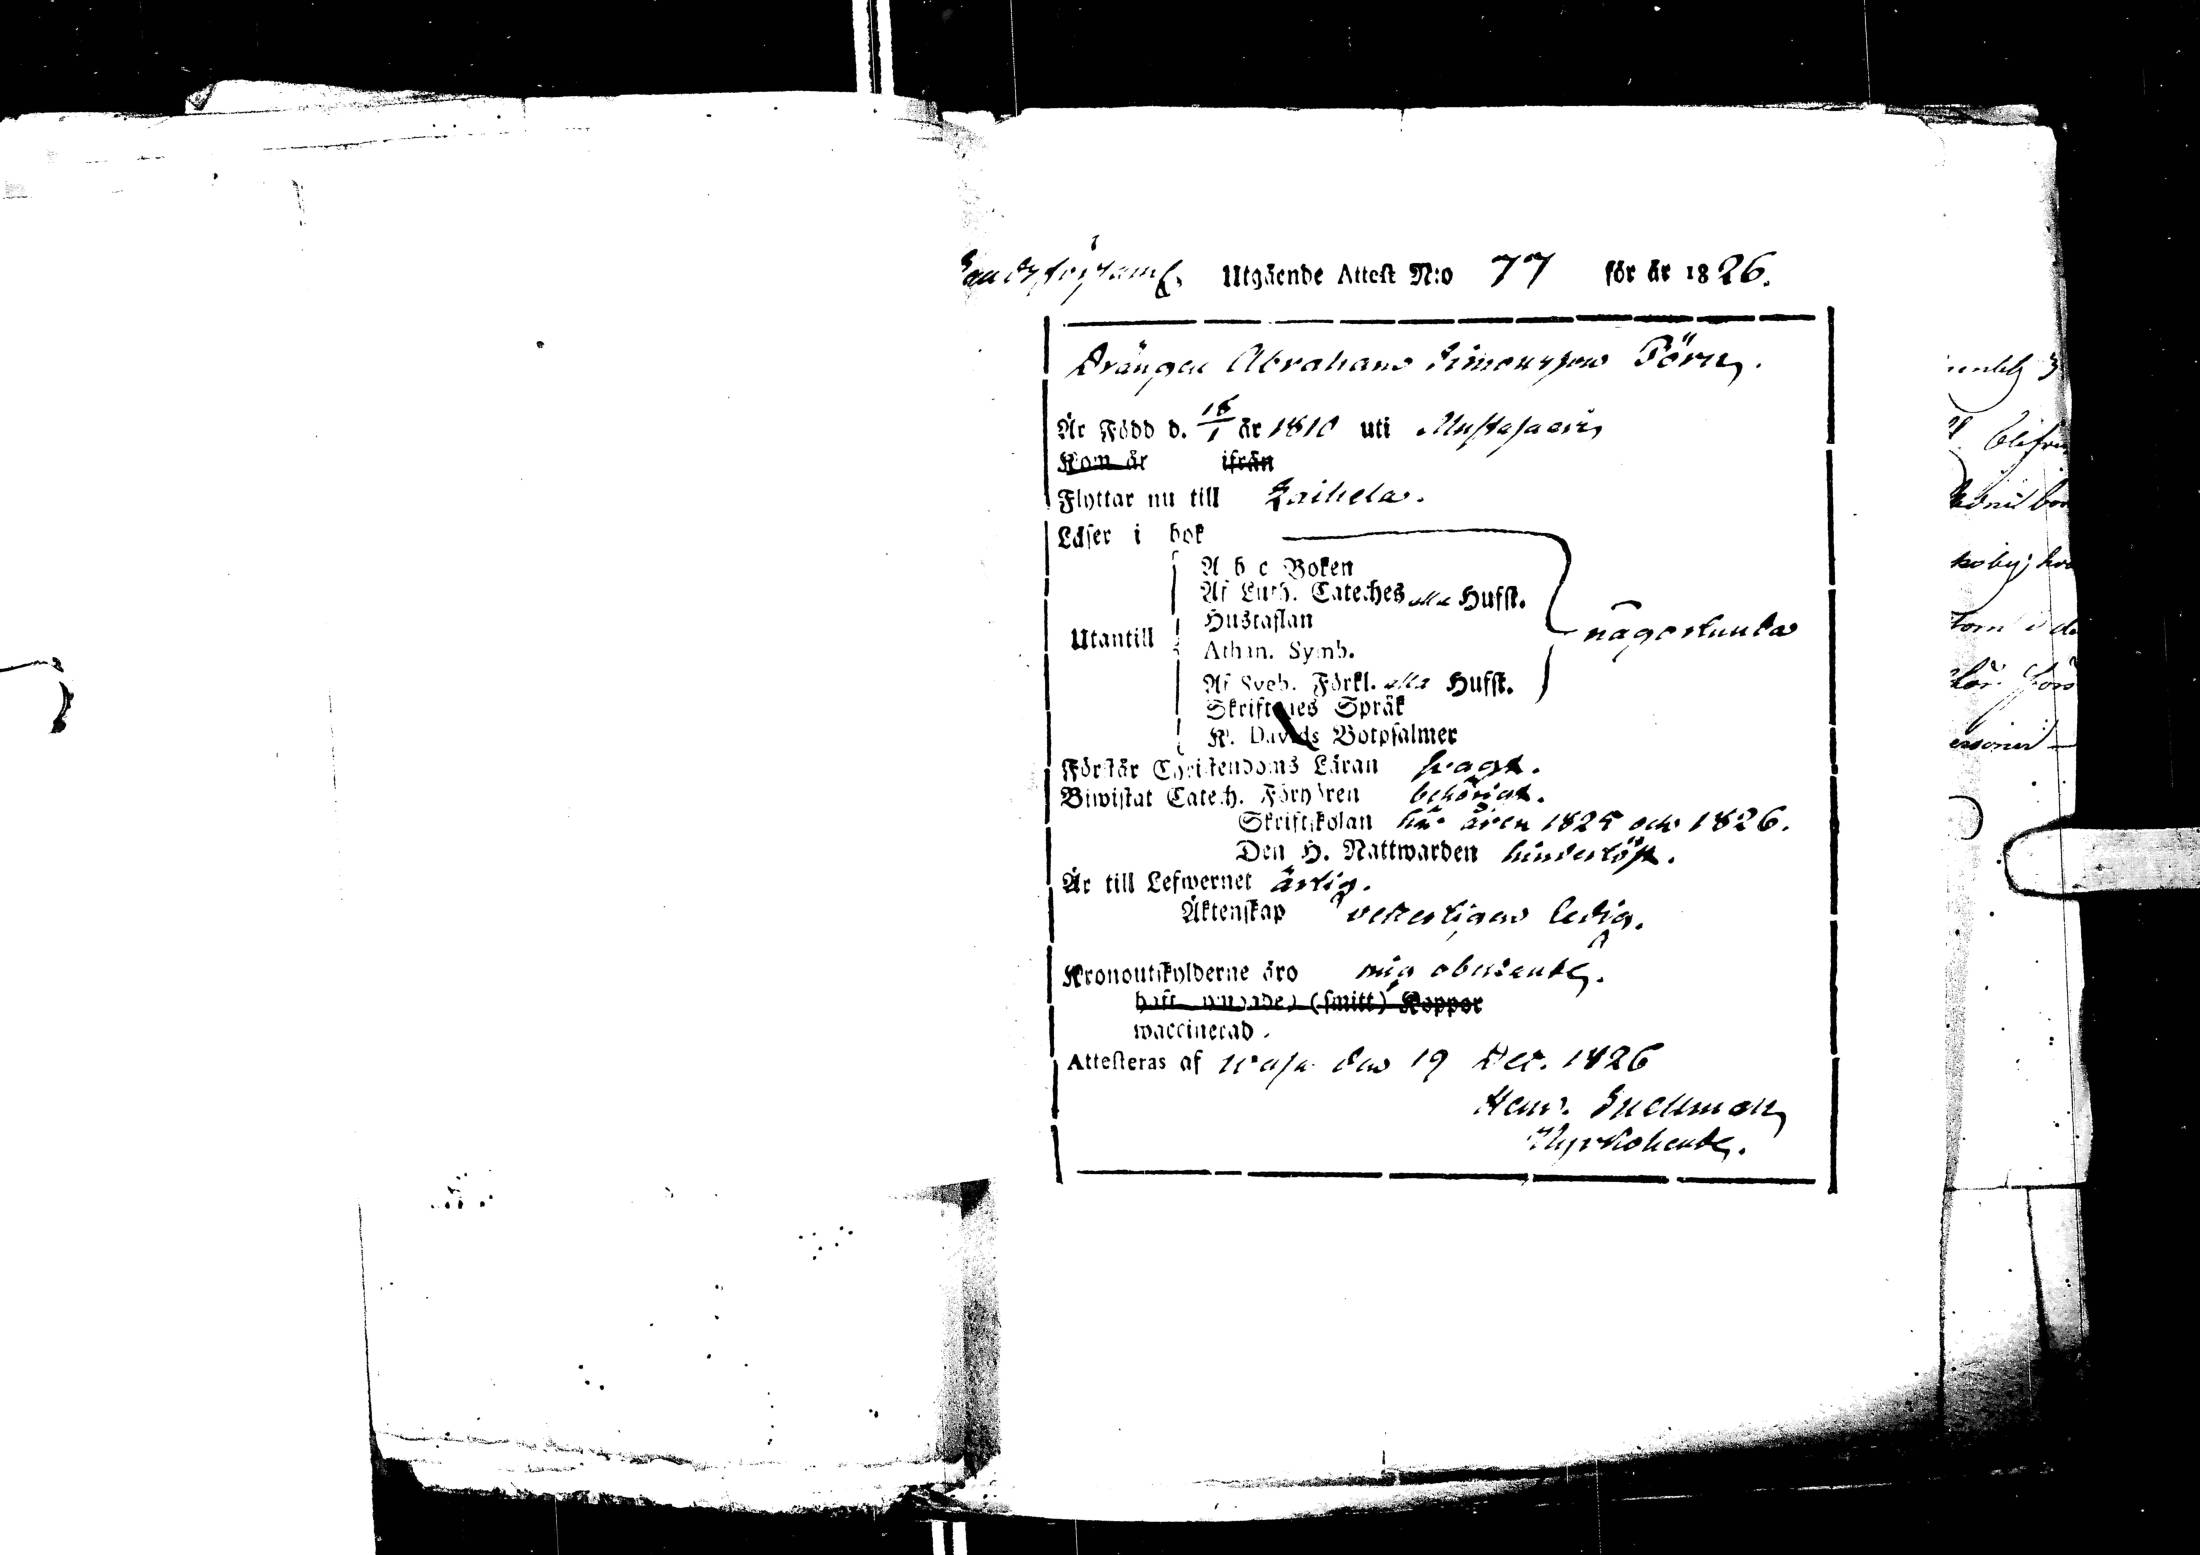 Landsförsaml. Utgående Attest N:o 77 för år 1826.
Drängen Abraham Simonsson Törn,
Är Född d. 18/1 år 1810 uti Mustasaari
Kom år ifrån
Flyttar nu till Laihela.
Läser i bok
A b c Boken
Af Luth. Cateches alla Hufst.
Hustaflan
någorlunda
Utantill
Athan. Symb.
Af Sveb. Förkl. alla Hufst.
Skriftenes Språk
K. Davids Botpsalmer
Förstår Christendoms Läran svagt.
Biwistat Catech. Förhören behörigt.
Skriftskolan här åren 1825 och 1826.
Den H. Nattwarden hinderlöst.
Är till Lefwernet ärlig.
Äktenskap veterligen ledig.
Kronoutskylderne äro mig obekante.
haft (smitt) Koppor
waccinerad.
Attesteras af Wasa den 19 Dec. 1826
Henr. Backman
Kyrkoherde.